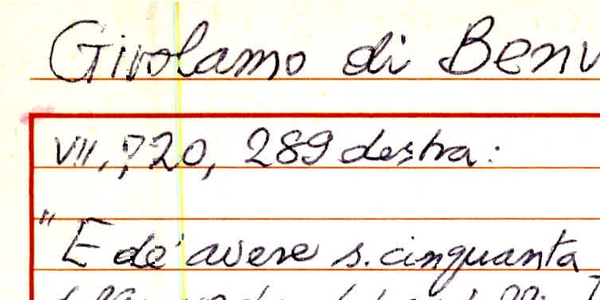 Girolamo di Benv
VII, 720, 289 destra:
"E de' avere s. cinquanta